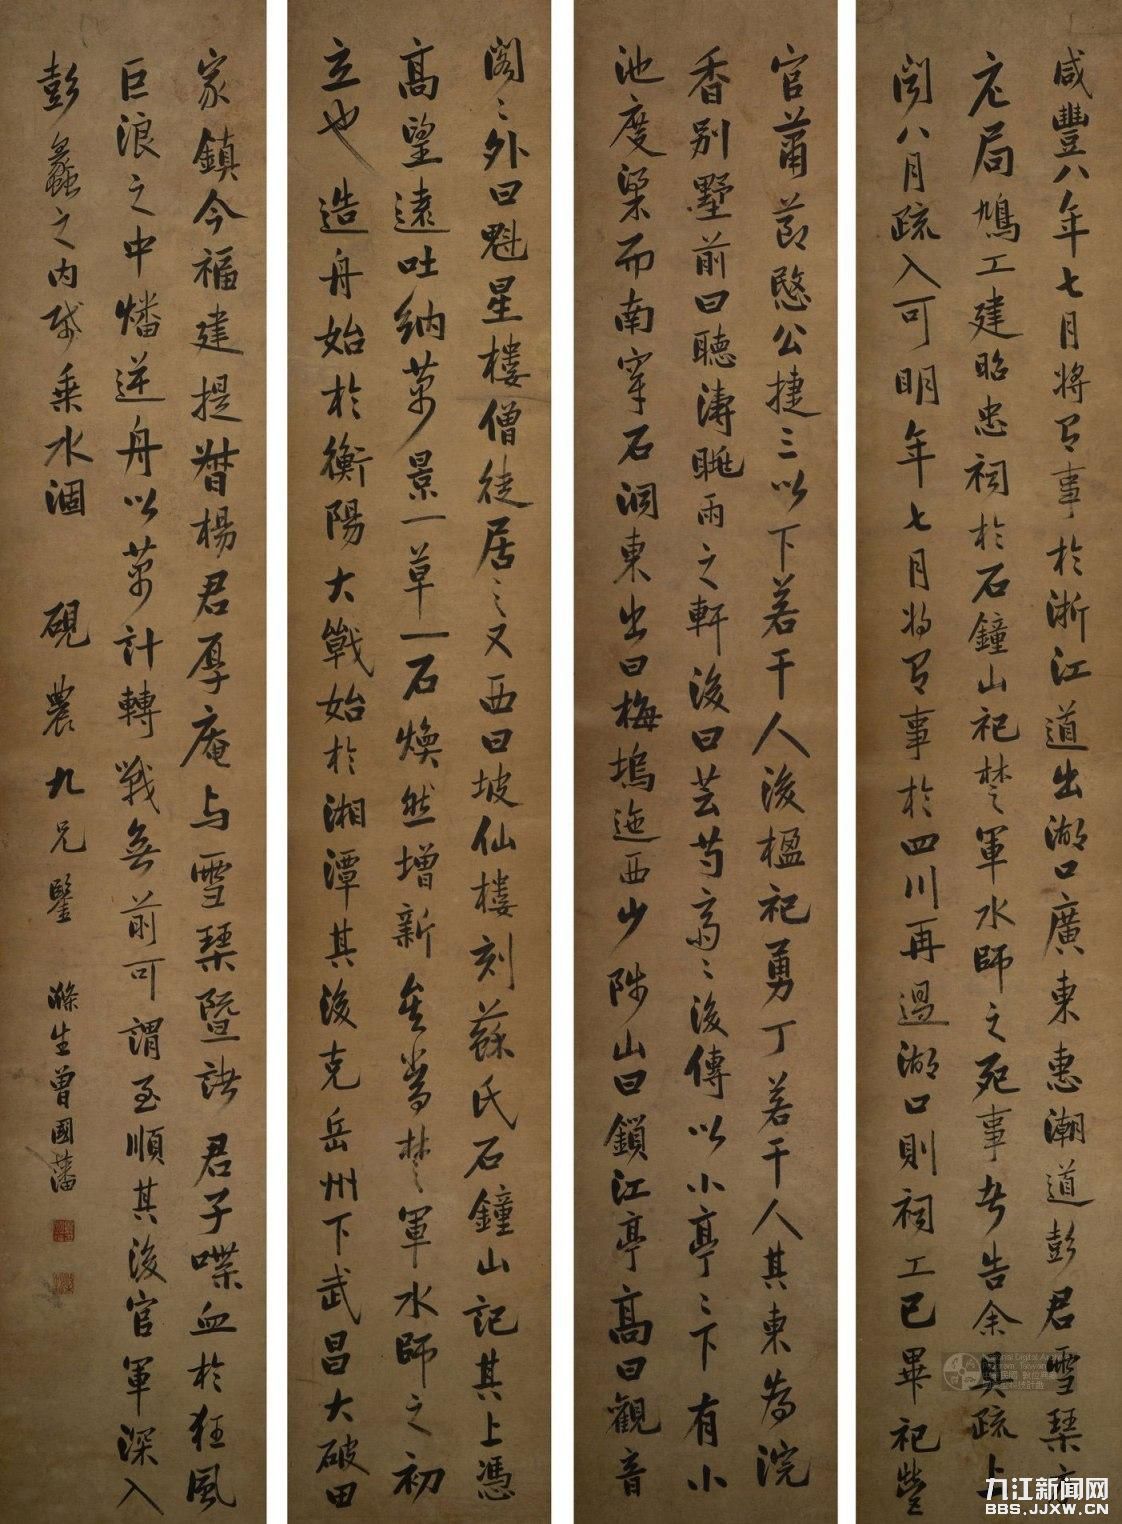 咸豐八年七月將有事於浙江道出湖口廣東惠潮道彭君雪琴方
庀局鳩工建昭忠祠於石鐘山祀楚軍水師之死事者告余具疏上
聞八月疏入可明年七月將有事於四川再過湖口則祠工已畢祀營
官蕭節愍公捷三以下若干人後楹祀勇丁若干人其東為浣
香別墅前曰聽濤眺雨之軒後曰芸芍齋〻後傳以小亭〻下有小
池度梁而南穿石洞東出曰梅塢迤西少陟山曰鎖江亭高曰觀音
閣〻外曰魁星樓僧徒居之又西曰坡仙樓刻蘇氏石鐘山記其上憑
高望遠吐納萬景一草一石煥然增新矣當楚軍水師之初
立也造舟始於衡陽大戰始於湘潭其後克岳州下武昌大破田
家鎮今福建提督楊君厚庵与雪琴暨諸君子喋血於狂風
巨浪之中燔逆舟以萬計轉戰無前可謂至順其後官軍深入
彭蠡之內賊乘水涸 硯農九兄鑒 滌生曾國藩
九江新闻网
BBS.JJXW.CN